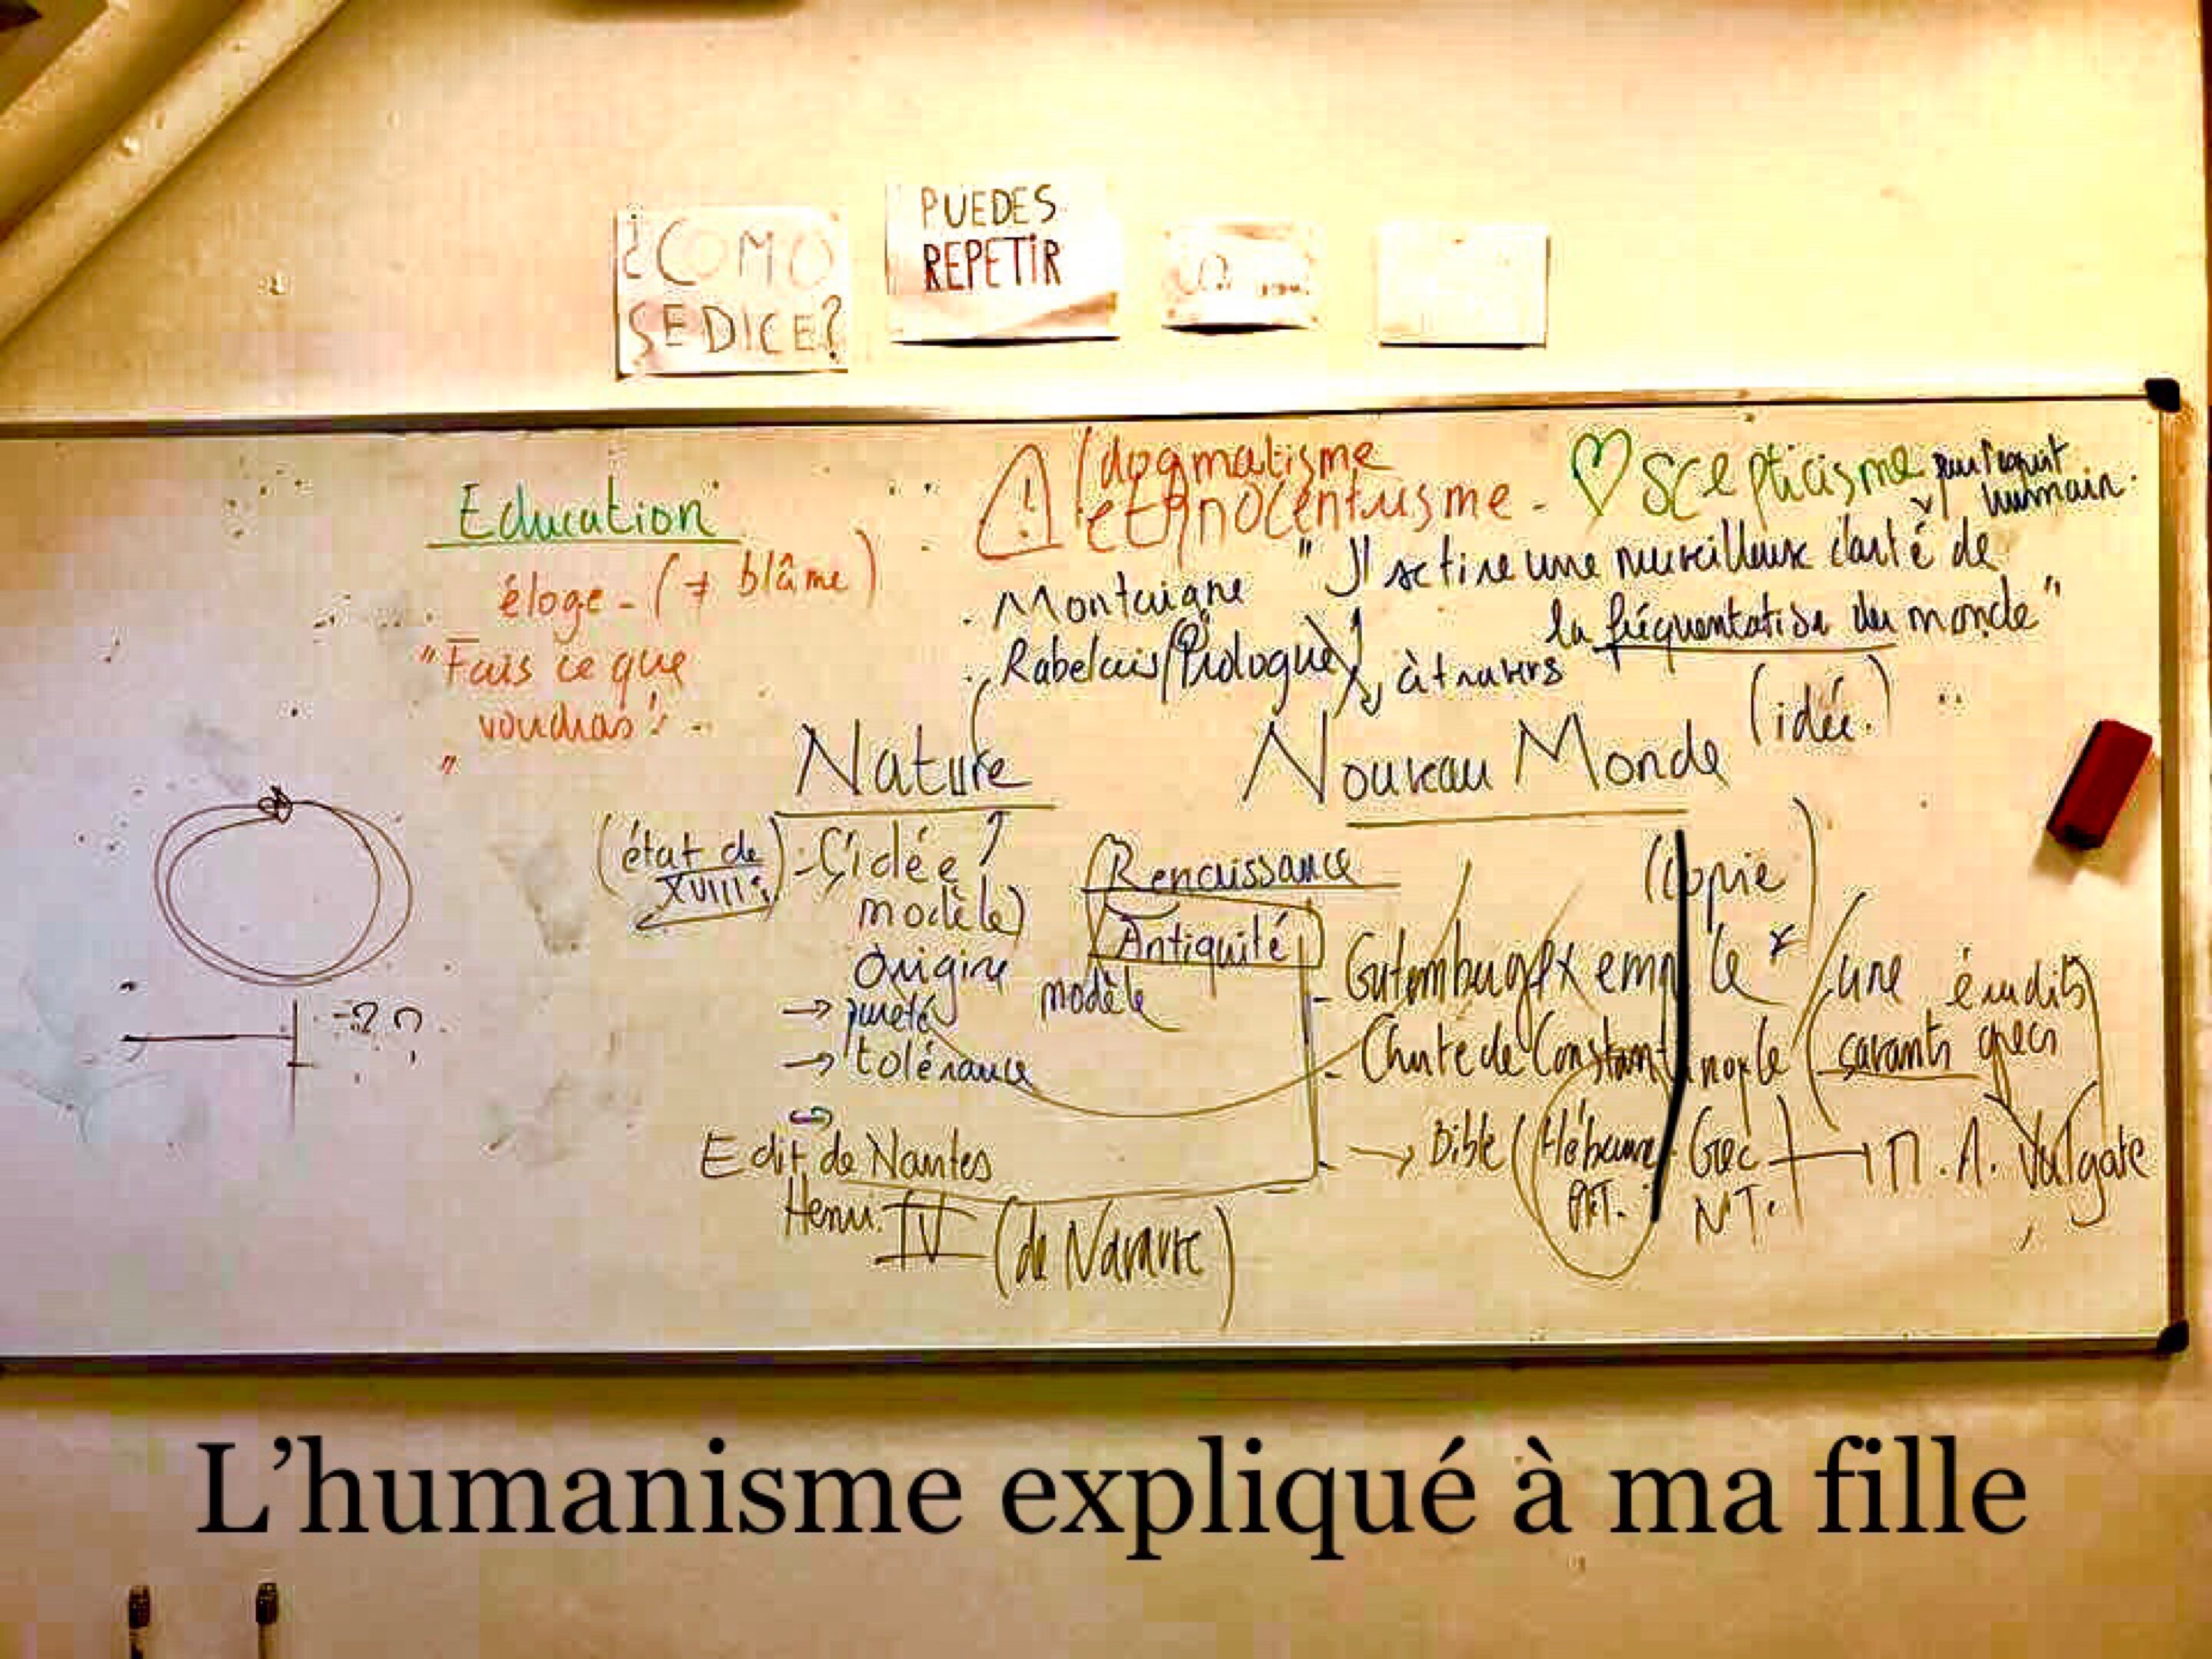 ¿COMO
SE DICE?
PUEDES
REPETIR
Education
éloge - (≠ blâme)
"Fais ce que
voudras!
"
dogmatisme
ethnocentrisme -
♡ scepticisme
humain.
Montaigne
Rabelais (Prologue)
"Il se tire une merveilleuse clarté de
la fréquentation du monde"
à travers
(idée.)
Nature
Nouveau Monde
(état de
XVIIIe)
idée
modèle)
Origine
→ pureté
→ tolérance
Renaissance
Antiquité
modèle
(copie)
- Gutemburg exemple
- Chute de Constantinople
érudits
savants grecs
→ Bible (Hébreu Grec
N.T.
Vulgate
Edit de Nantes
Henri IV (de Navarre)
L'humanisme expliqué à ma fille